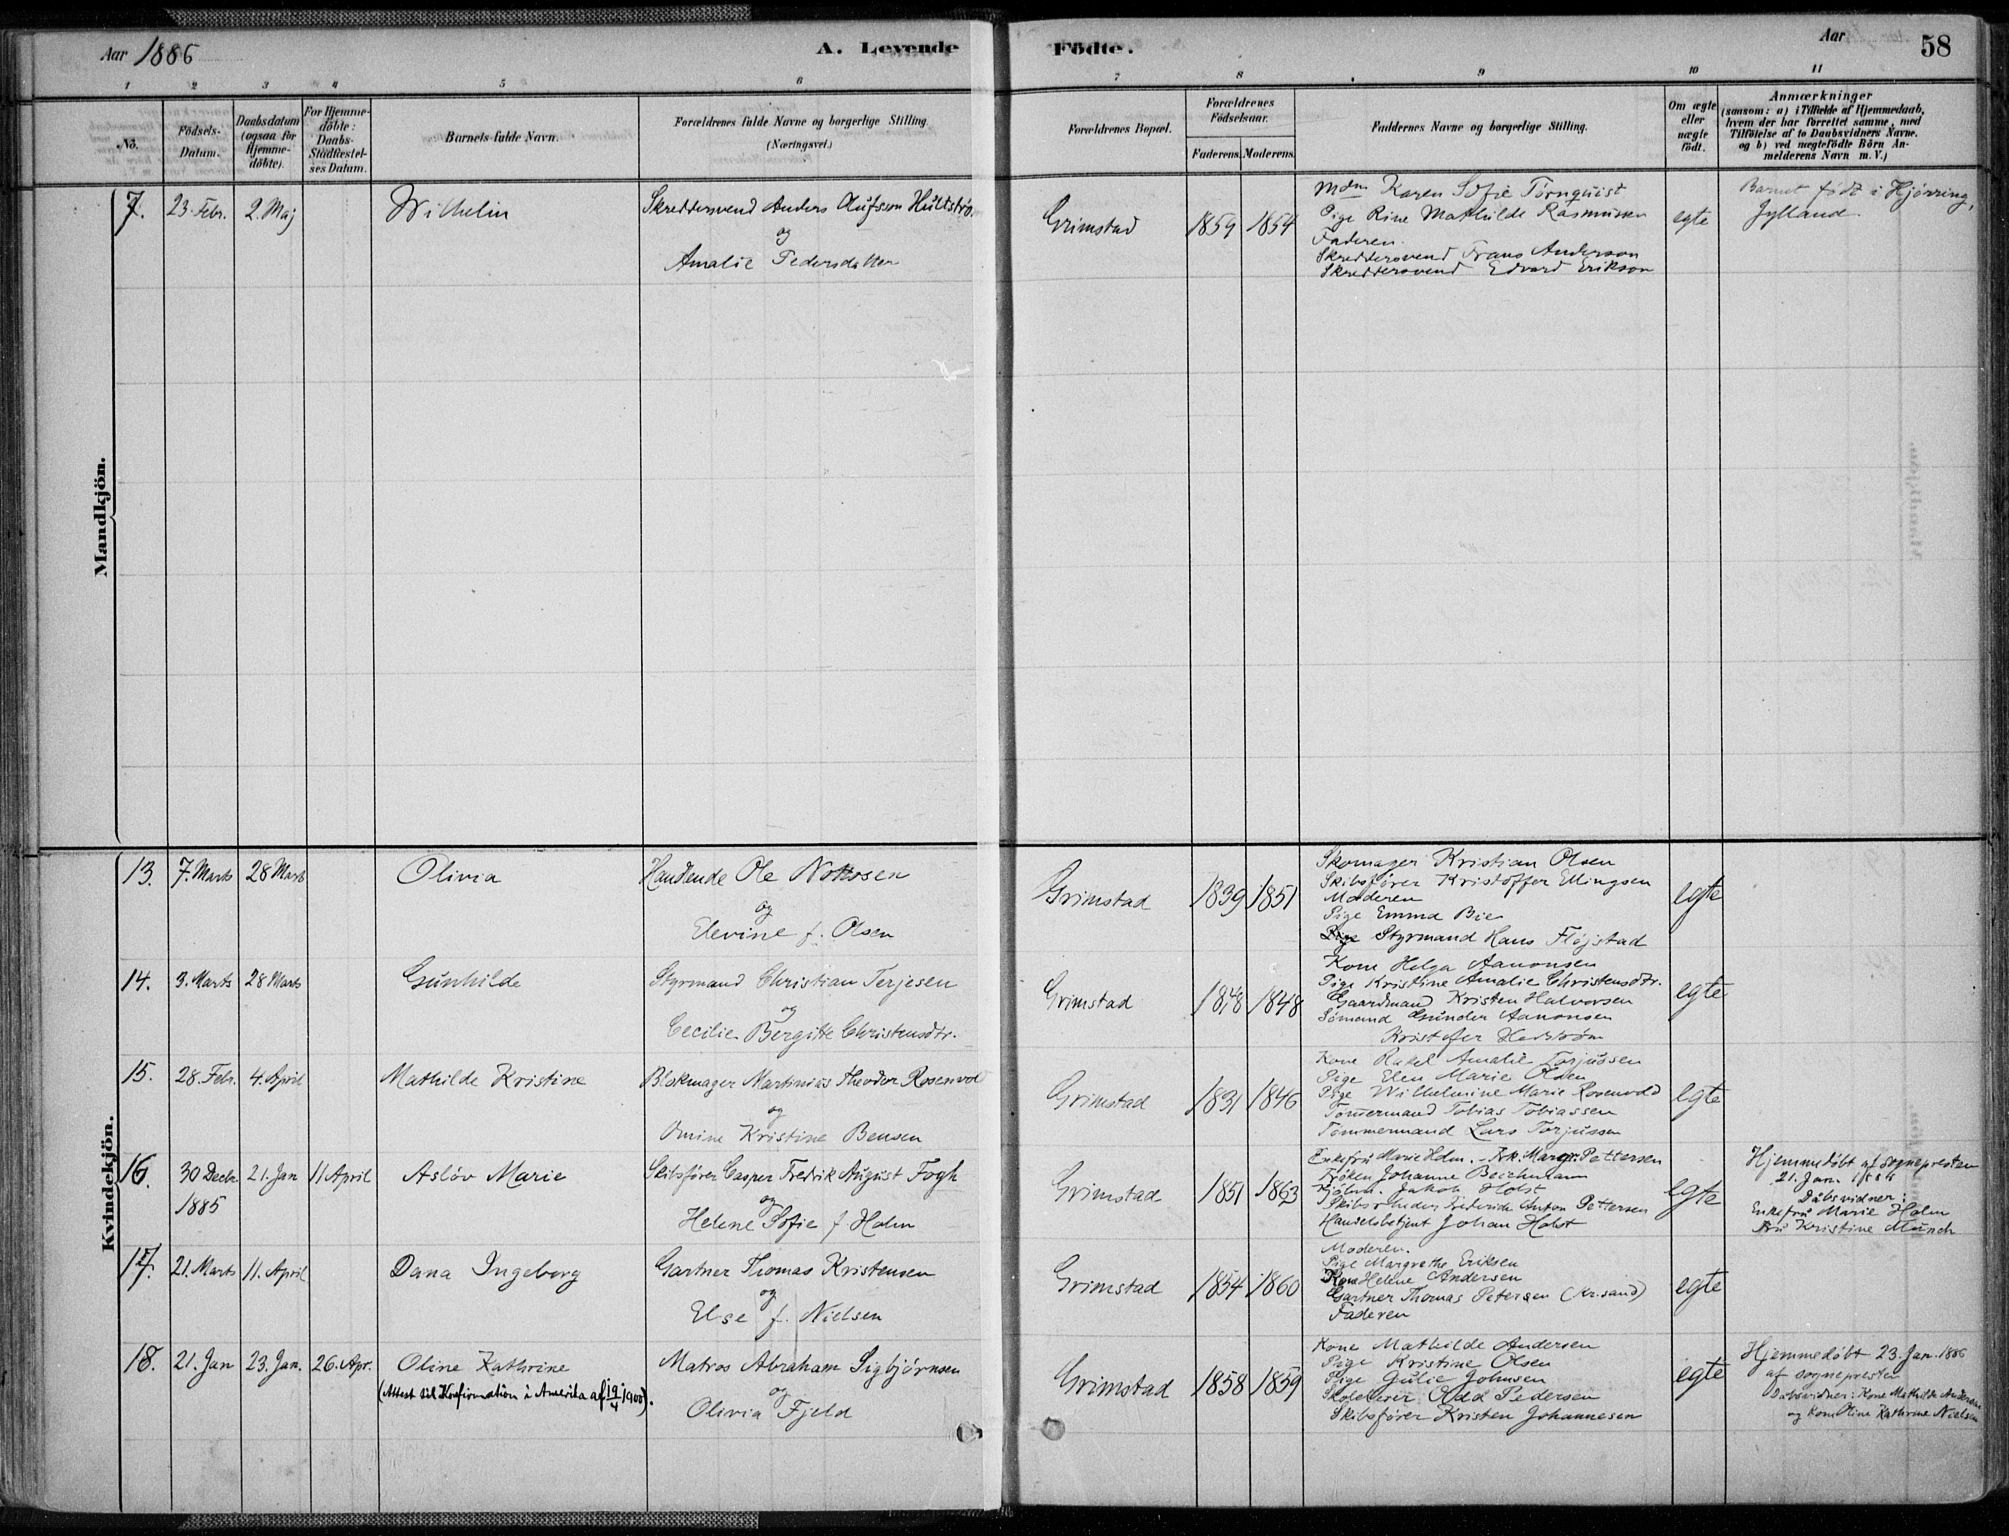 Aar 1886
A. Levende Födte.
Aar
58
1 2 3 4 5 6 7 8 9 10 11
No.
Födsels-Datum.
Daabsdatum (ogsaa for Hjemmedöbte).
For Hjemmedöbte: Daabs-Stadfæstelses Datum.
Barnets fulde Navn.
Forældrenes fulde Navne og borgerlige Stilling (Næringsvei.)
Forældrenes Bopæl.
Forældrenes Födselsaar.
Faderens. Moderens.
Faddernes Navne og borgerlige Stilling.
Om ægte eller uægte födt.
Anmærkninger
(saasom: a) i Tilfælde af Hjemmedaab, hvem der har forrettet samme, med Tilföielse af to Daabsvidners Navne. og b) ved uægtefödte Börn Anmelderens Navn m. V.)
Mandkjön.
7. 23. Febr. 2. Maj Wilhelm
Skreddersvend Anders Olufsson Hultstrø
og
Amalie Pedersdatter
Grimstad 1859 1854
Mdm Karen Sofie Tørnquist
Pige Rine Mathilde Rasmussen
Faderen.
Skreddersvend Frans Anderson
Skreddersvend Edvard Erikson
egte
Barnet født i Hjørring,
Jylland
Kvindekjön.
13. 7. Marts 28 Marts Olivia
Handlende Ole
og
Elevine f. Olsen
Grimstad 1839 1851
Skomager Kristian Olsen
Skibsfører Kristoffer Ellingsen
Moderen
Pige Emma Bie
Styrmand Hans Fløjstad
egte
14. 9. Marts 28 Marts Gunhilde
Styrmand Christian Terjesen
og
Cecilie Bergitte Christensdtr.
Grimstad 1848 1848
Kone Helga Aanonsen
Pige Kristine Amalie Christensdtr.
Gaardmand Kristen Halvorsen
Sømand Gunder Aanonsen
Kristofer Hedstrøm
egte
15. 28. Febr. 4. April Mathilde Kristine
Blokmager Martinius Theodor Rosenvold
og
Omine Kristine Bensen
Grimstad 1831 1846
Kone Rakel Amalie Torjussen
Pige Elen Marie Olsen
Pige Wilhelmine Marie Rosenvold
Tømmermand Tobias Tobiassen
Tømmermand Lars Torjussen
egte
16. 30 Decbr. 1885 21. Jan 11 April Asløv Marie
Skibsfører Casper Fredrik August Fogh
og
Helene Sofie f. Holm
Grimstad 1851 1863
Enkefru Marie Holm. - Frk. Margr. Pettersen
Frøken Johanne Beichmann
Kjøbm. Jakob Holst
Skibsreder Frederick Anton Pettersen
Handelsbetjent Johan Holst
egte
Hjemmedøbt af sognepresten
21. Jan.
Dåbsvidner:
Enkefru Marie Holm
Fru Kristine Münch
17. 21. Marts 11. April Dana Ingeborg
Gartner Thomas Kristensen
og
Else f. Nielsen
Grimstad 1854 1860
Moderen.
Pige Margrethe Eriksen
Kone Helene Andersen
Gartner Thomas Petersen (Kr.sand)
Faderen
egte
18. 21. Jan 23. Jan. 26. Apr. Oline Kathrine
(Attest til Konfirmation i Amerika af 19/4 1900).
Matros Abraham Sigbjørnsen
og
Olivia Fjeld
Grimstad 1858 1859
Kone Mathilde Andersen
Pige Kristine Olsen
Pige Gulie Johnsen
Skolelærer Odd Pedersen
Skibsfører Kristen Johannesen
egte
Hjemmedøbt 23. Jan. 1886
af sognepresten
Dåbsvidner: Kone Mathilde Andersen
og Kone Oline Kathrine Nielsen